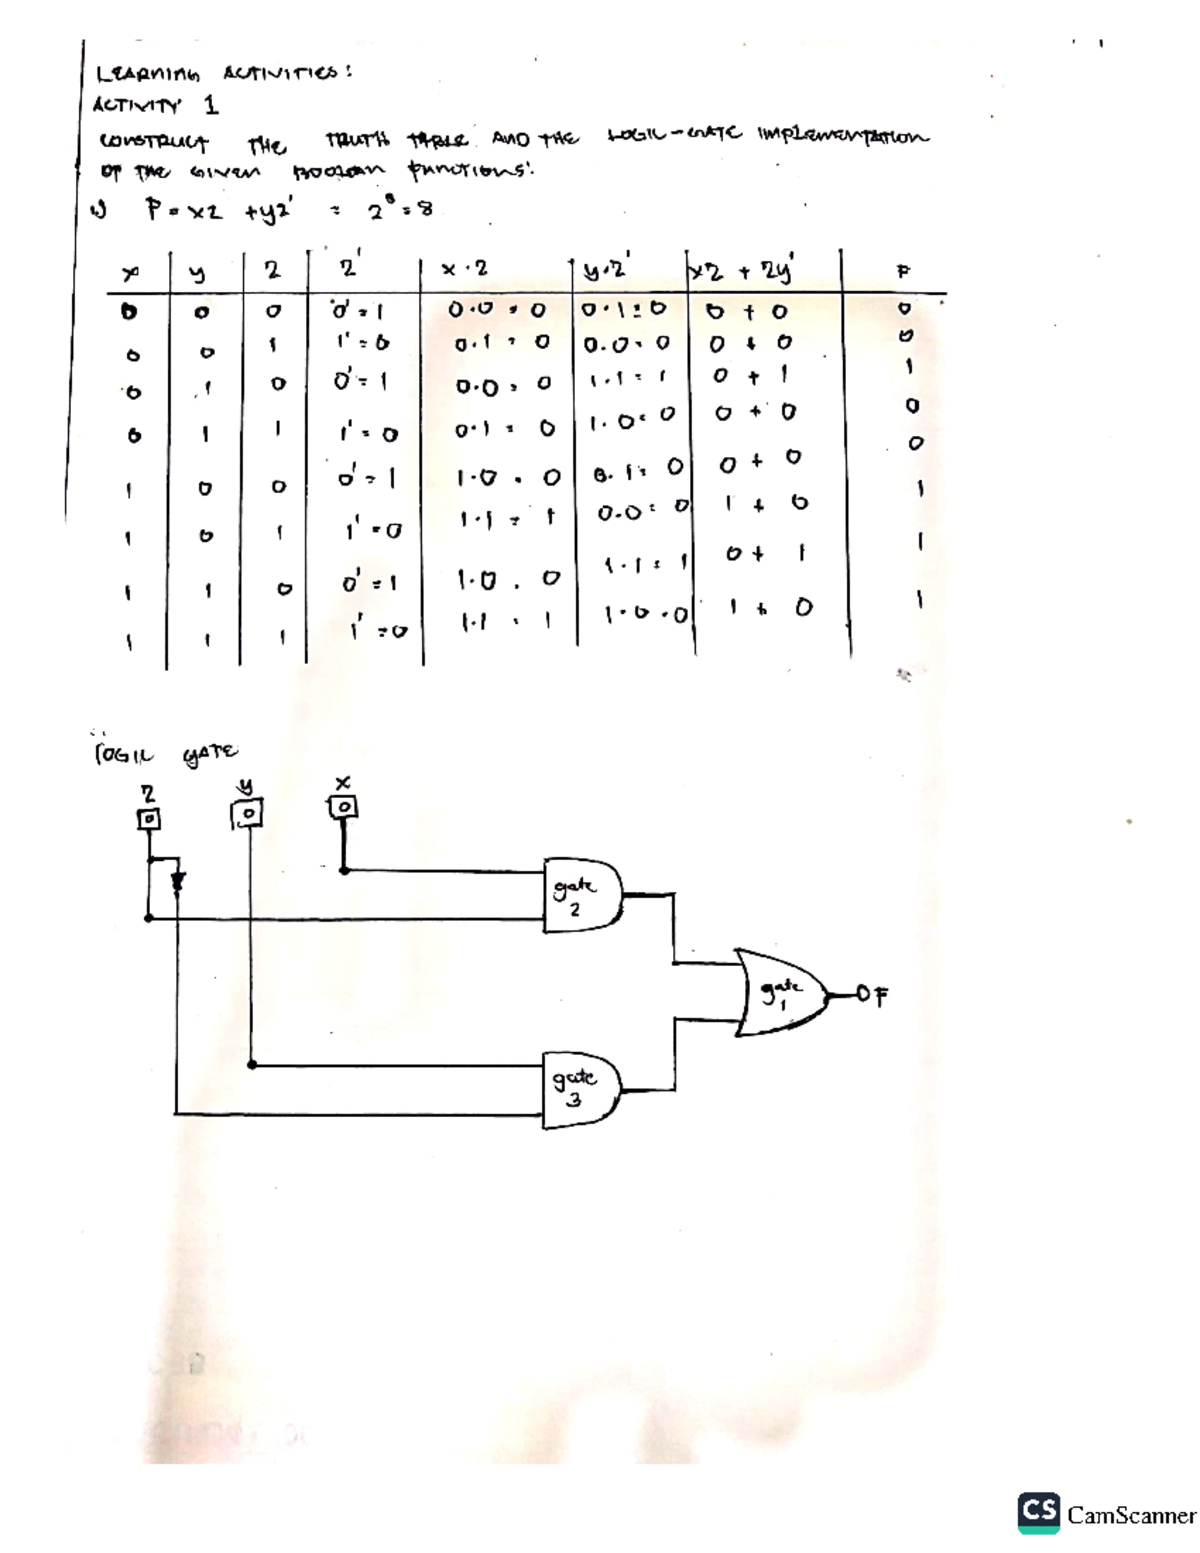 LEARNING ACTIVITIES:
ACTIVITY 1
CONSTRUCT THE TRUTH TABLE AND THE LOGIC-GATE IMPLEMENTATION
OF THE GIVEN BOOLEAN FUNCTIONS:
1.) F = xz + yz' = 2³ = 8
x y z z' x·z y·z' xz + zy' F
0 0 0 0'=1 0·0=0 0·1=0 0+0 0
0 0 1 1'=0 0·1=0 0·0=0 0+0 0
0 1 0 0'=1 0·0=0 1·1=1 0+1 1
0 1 1 1'=0 0·1=0 1·0=0 0+0 0
1 0 0 0'=1 1·0=0 0·1=0 0+0 0
1 0 1 1'=0 1·1=1 0·0=0 1+0 1
1 1 0 0'=1 1·0=0 1·1=1 0+1 1
1 1 1 1'=0 1·1=1 1·0=0 1+0 1
LOGIC GATE
z y x
0 0 0
gate 2
gate 1
F
gate 3
CS CamScanner